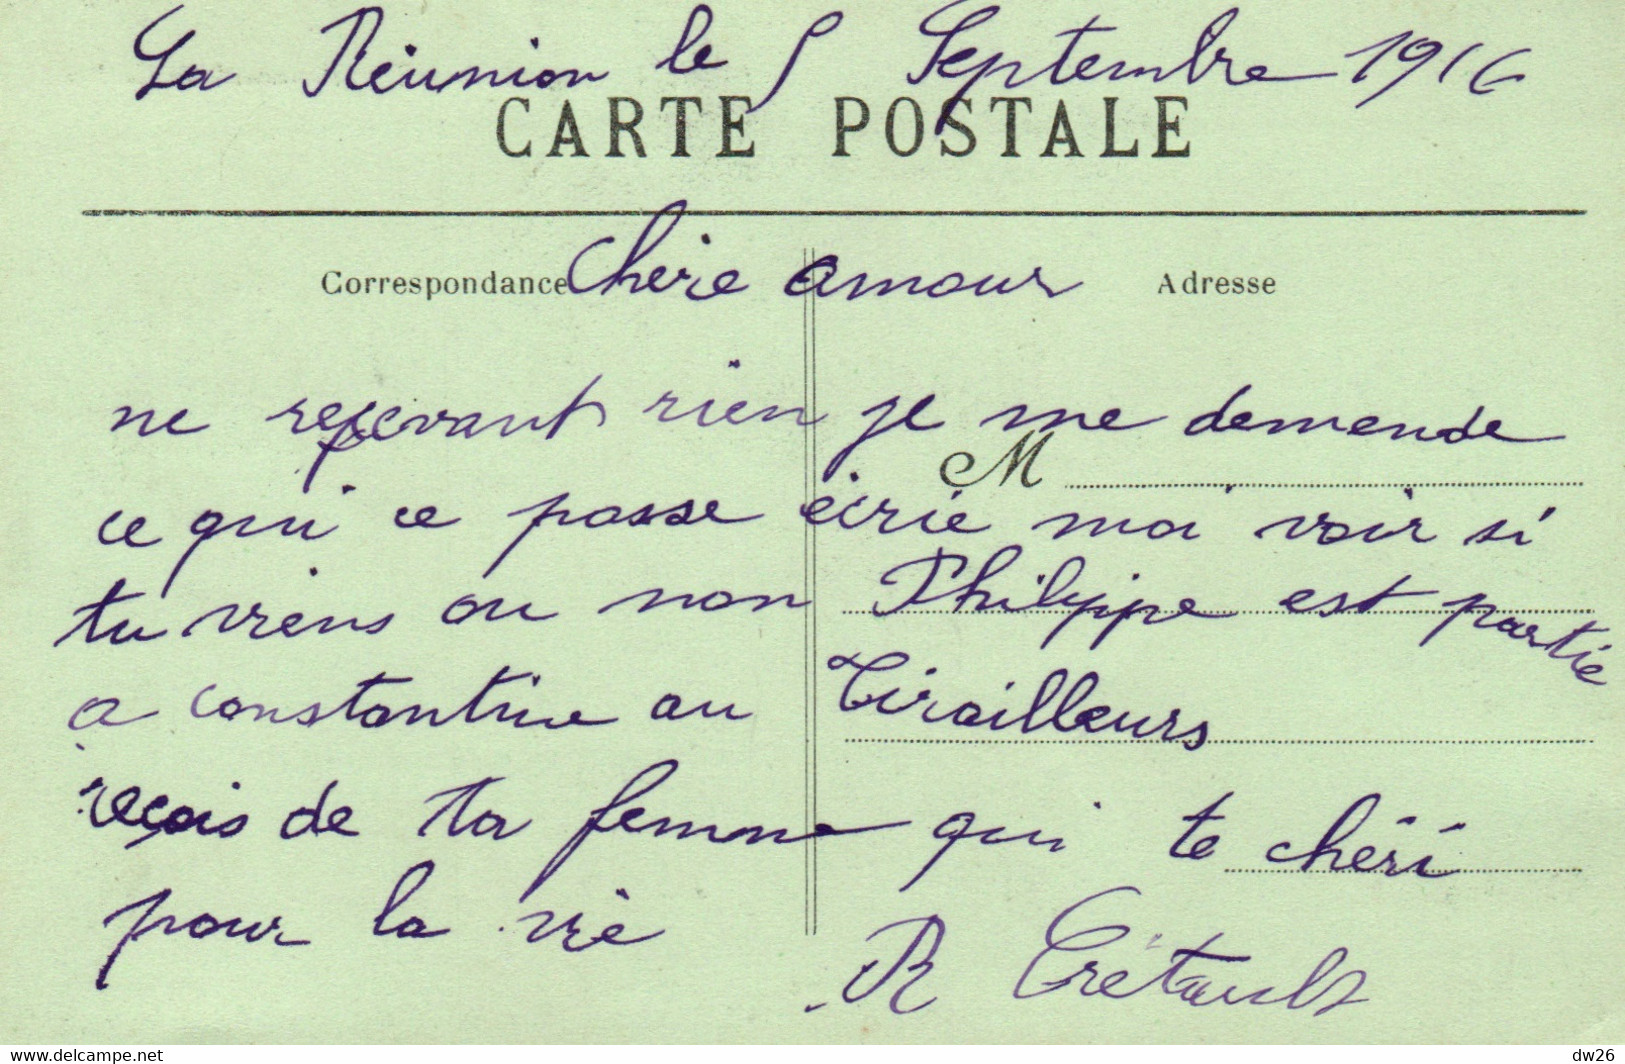 La Réunion le 5 Septembre 1916
CARTE POSTALE
Correspondance Chère amour Adresse
ne reçevant rien je me demende
M
ce qui ce passe écrie moi voir si
tu viens ou non Philippe est partie
a constantine au Tirailleurs
reçois de ta femme qui te chéri
pour la vie
R Crétault
www.delcampe.net
dw26